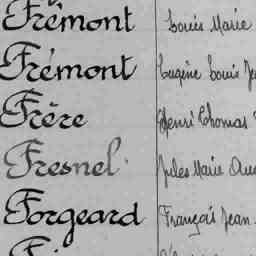 Frémont Louis Marie
Frémont Eugène Louis
Frère Henri Thomas
Fresnel Jules Marie
Forgeard François Jean